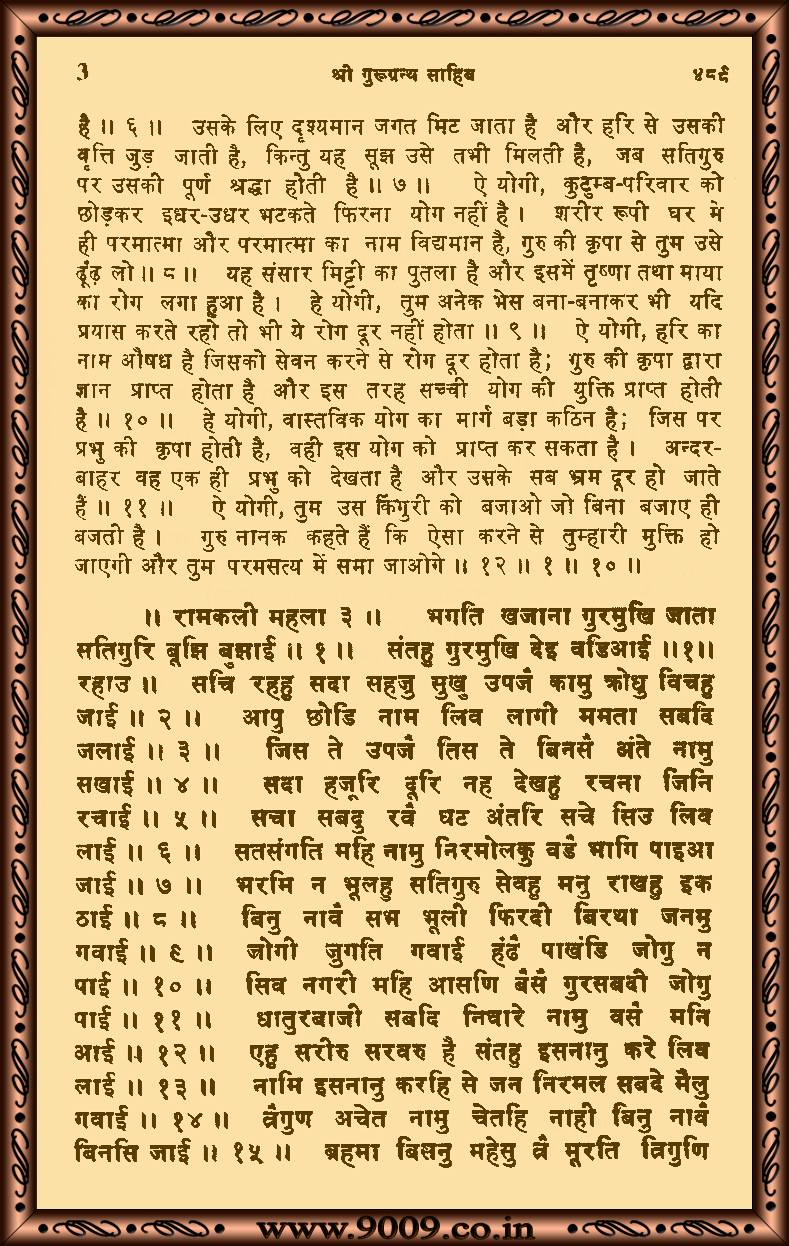 3 श्री गुरूग्रन्थ साहिब ४८९
है ॥ ६ ॥ उसके लिए दृश्यमान जगत मिट जाता है और हरि से उसकी
वृत्ति जुड़ जाती है, किन्तु यह सूझ उसे तभी मिलती है, जब सतिगुरु
पर उसकी पूर्ण श्रद्धा होती है ॥ ७ ॥ ऐ योगी, कुटुम्ब-परिवार को
छोड़कर इधर-उधर भटकते फिरना योग नहीं है । शरीर रूपी घर में
ही परमात्मा और परमात्मा का नाम विद्यमान है, गुरु की कृपा से तुम उसे
ढूंढ़ लो ॥ ८ ॥ यह संसार मिट्टी का पुतला है और इसमें तृष्णा तथा माया
का रोग लगा हुआ है । हे योगी, तुम अनेक भेस बना-बनाकर भी यदि
प्रयास करते रहो तो भी ये रोग दूर नहीं होता ॥ ९ ॥ ऐ योगी, हरि का
नाम औषध है जिसको सेवन करने से रोग दूर होता है; गुरु की कृपा द्वारा
ज्ञान प्राप्त होता है और इस तरह सच्ची योग की युक्ति प्राप्त होती
है ॥ १० ॥ हे योगी, वास्तविक योग का मार्ग बड़ा कठिन है; जिस पर
प्रभु की कृपा होती है, वही इस योग को प्राप्त कर सकता है । अन्दर-
बाहर वह एक ही प्रभु को देखता है और उसके सब भ्रम दूर हो जाते
हैं ॥ ११ ॥ ऐ योगी, तुम उस किंगुरी को बजाओ जो बिना बजाए ही
बजती है । गुरु नानक कहते हैं कि ऐसा करने से तुम्हारी मुक्ति हो
जाएगी और तुम परमसत्य में समा जाओगे ॥ १२ ॥ १ ॥ १० ॥
॥ रामकली महला ३ ॥ भगति खजाना गुरमुखि जाता
सतिगुरि बूझि बुझाई ॥ १ ॥ संतहु गुरमुखि देइ वडिआई ॥१॥
रहाउ ॥ सचि रहहु सदा सहजु सुखु उपजै कामु क्रोधु विचहु
जाई ॥ २ ॥ आपु छोडि नाम लिव लागी ममता सबदि
जलाई ॥ ३ ॥ जिस ते उपजै तिस ते बिनसै अंते नामु
सखाई ॥ ४ ॥ सदा हजूरि दूरि नह देखहु रचना जिनि
रचाई ॥ ५ ॥ सचा सबदु रवै घट अंतरि सचे सिउ लिव
लाई ॥ ६ ॥ सतसंगति महि नामु निरमोलकु वडै भागि पाइआ
जाई ॥ ७ ॥ भरमि न भूलहु सतिगुरु सेवहु मनु राखहु इक
ठाई ॥ ८ ॥ बिनु नावै सभ भूली फिरदी बिरथा जनमु
गवाई ॥ ९ ॥ जोगी जुगति गवाई हंढै पाखंडि जोगु न
पाई ॥ १० ॥ सिव नगरी महि आसणि बैसै गुरसबदी जोगु
पाई ॥ ११ ॥ धातुरबाजी सबदि निवारे नामु वसै मनि
आई ॥ १२ ॥ एहु सरीरु सरवरु है संतहु इसनानु करे लिव
लाई ॥ १३ ॥ नामि इसनानु करहि से जन निरमल सबदे मैलु
गवाई ॥ १४ ॥ त्रैगुण अचेत नामु चेतहि नाही बिनु नावै
बिनसि जाई ॥ १५ ॥ ब्रहमा बिसनु महेसु त्रै मूरति त्रिगुणि
www.9009.co.in